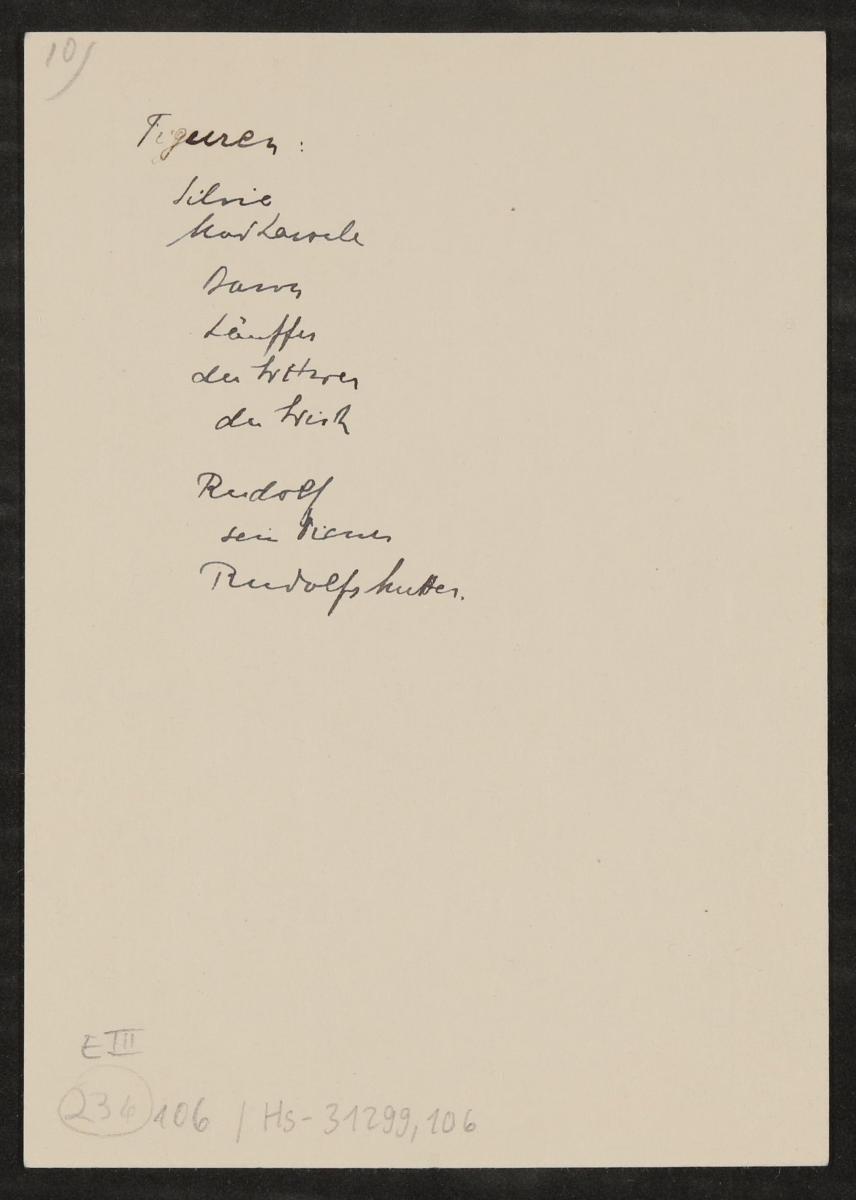 10)
Figuren:
Silvie
Mad Laroche
Baron
Läuffer
der Witwer
der Wirth
Rudolf
sein Diener
Rudolfs Mutter.
E III
234 106 / Hs-31299,106